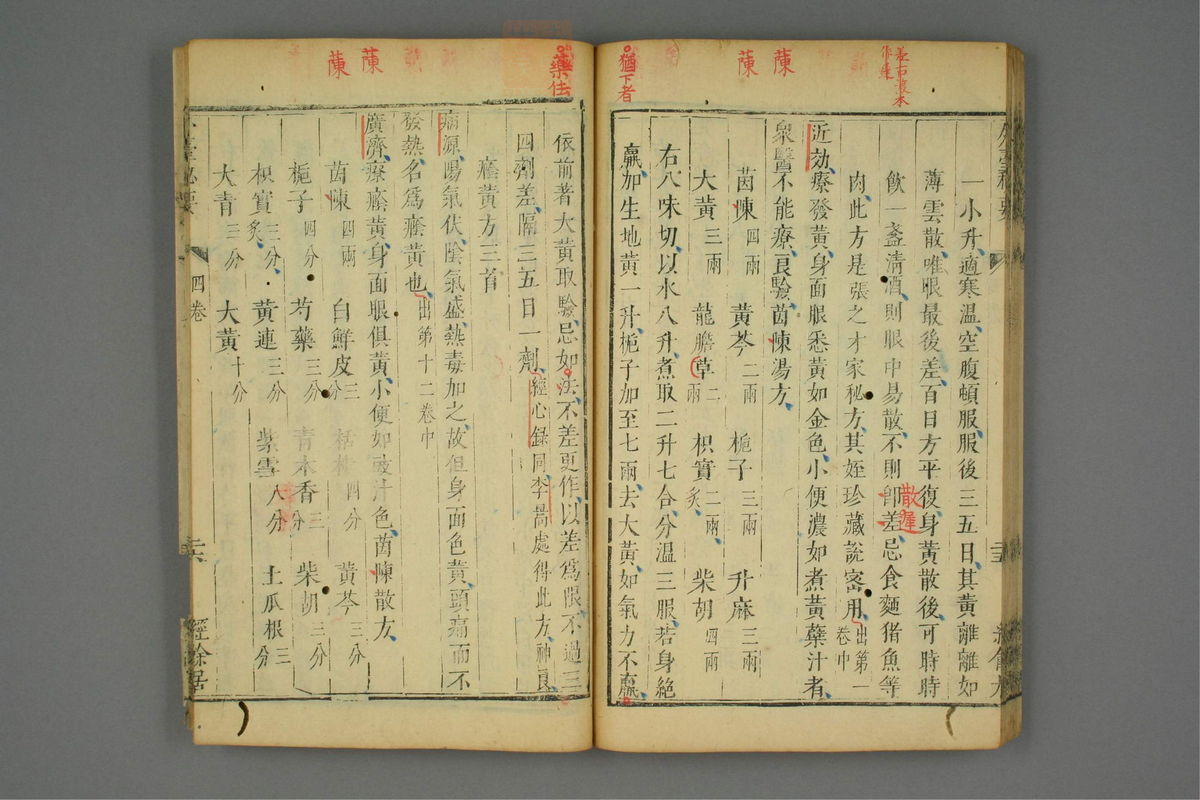 差古鈔本
作遲
蔯
蔯
猶下者
一小升適寒温空腹頓服服後三五日其黃離離如
薄雲散唯眼最後差百日方平復身黃散後可時時
飲一盞清酒則眼中易散不則卽差忌食麵猪魚等
散遲
肉此方是張之才家秘方其姪珍藏說密用出第一卷中
近効療發黃身面眼悉黃如金色小便濃如煮黃蘗汁者
衆醫不能療良驗茵蔯湯方
茵蔯四兩 黃芩二兩 梔子三兩 升麻三兩
大黃三兩 龍膽草二兩 枳實二兩炙 柴胡四兩
右八味切以水八升煮取二升七合分温三服若身絶
羸加生地黃一升梔子加至七兩去大黃如氣力不羸
藥佉
蔯
蔯
依前著大黃取驗忌如法不差更作以差爲限不過三
四劑差隔三五日一劑經心錄同李暠處得此方神良
癊黃方三首
病源陽氣伏陰氣盛熱毒加之故但身面色黃頭痛而不
發熱名爲癊黃也出第十二卷中
廣濟療癊黃身面眼俱黃小便如豉汁色茵蔯散方
茵蔯四兩 白鮮皮三分 栝樓四分 黃芩三分
梔子四分 芍藥三分 青木香三分 柴胡三分
枳實三分炙 黃連三分 紫雪八分 土瓜根三分
大青三分 大黃十分
四卷
二六
經餘居